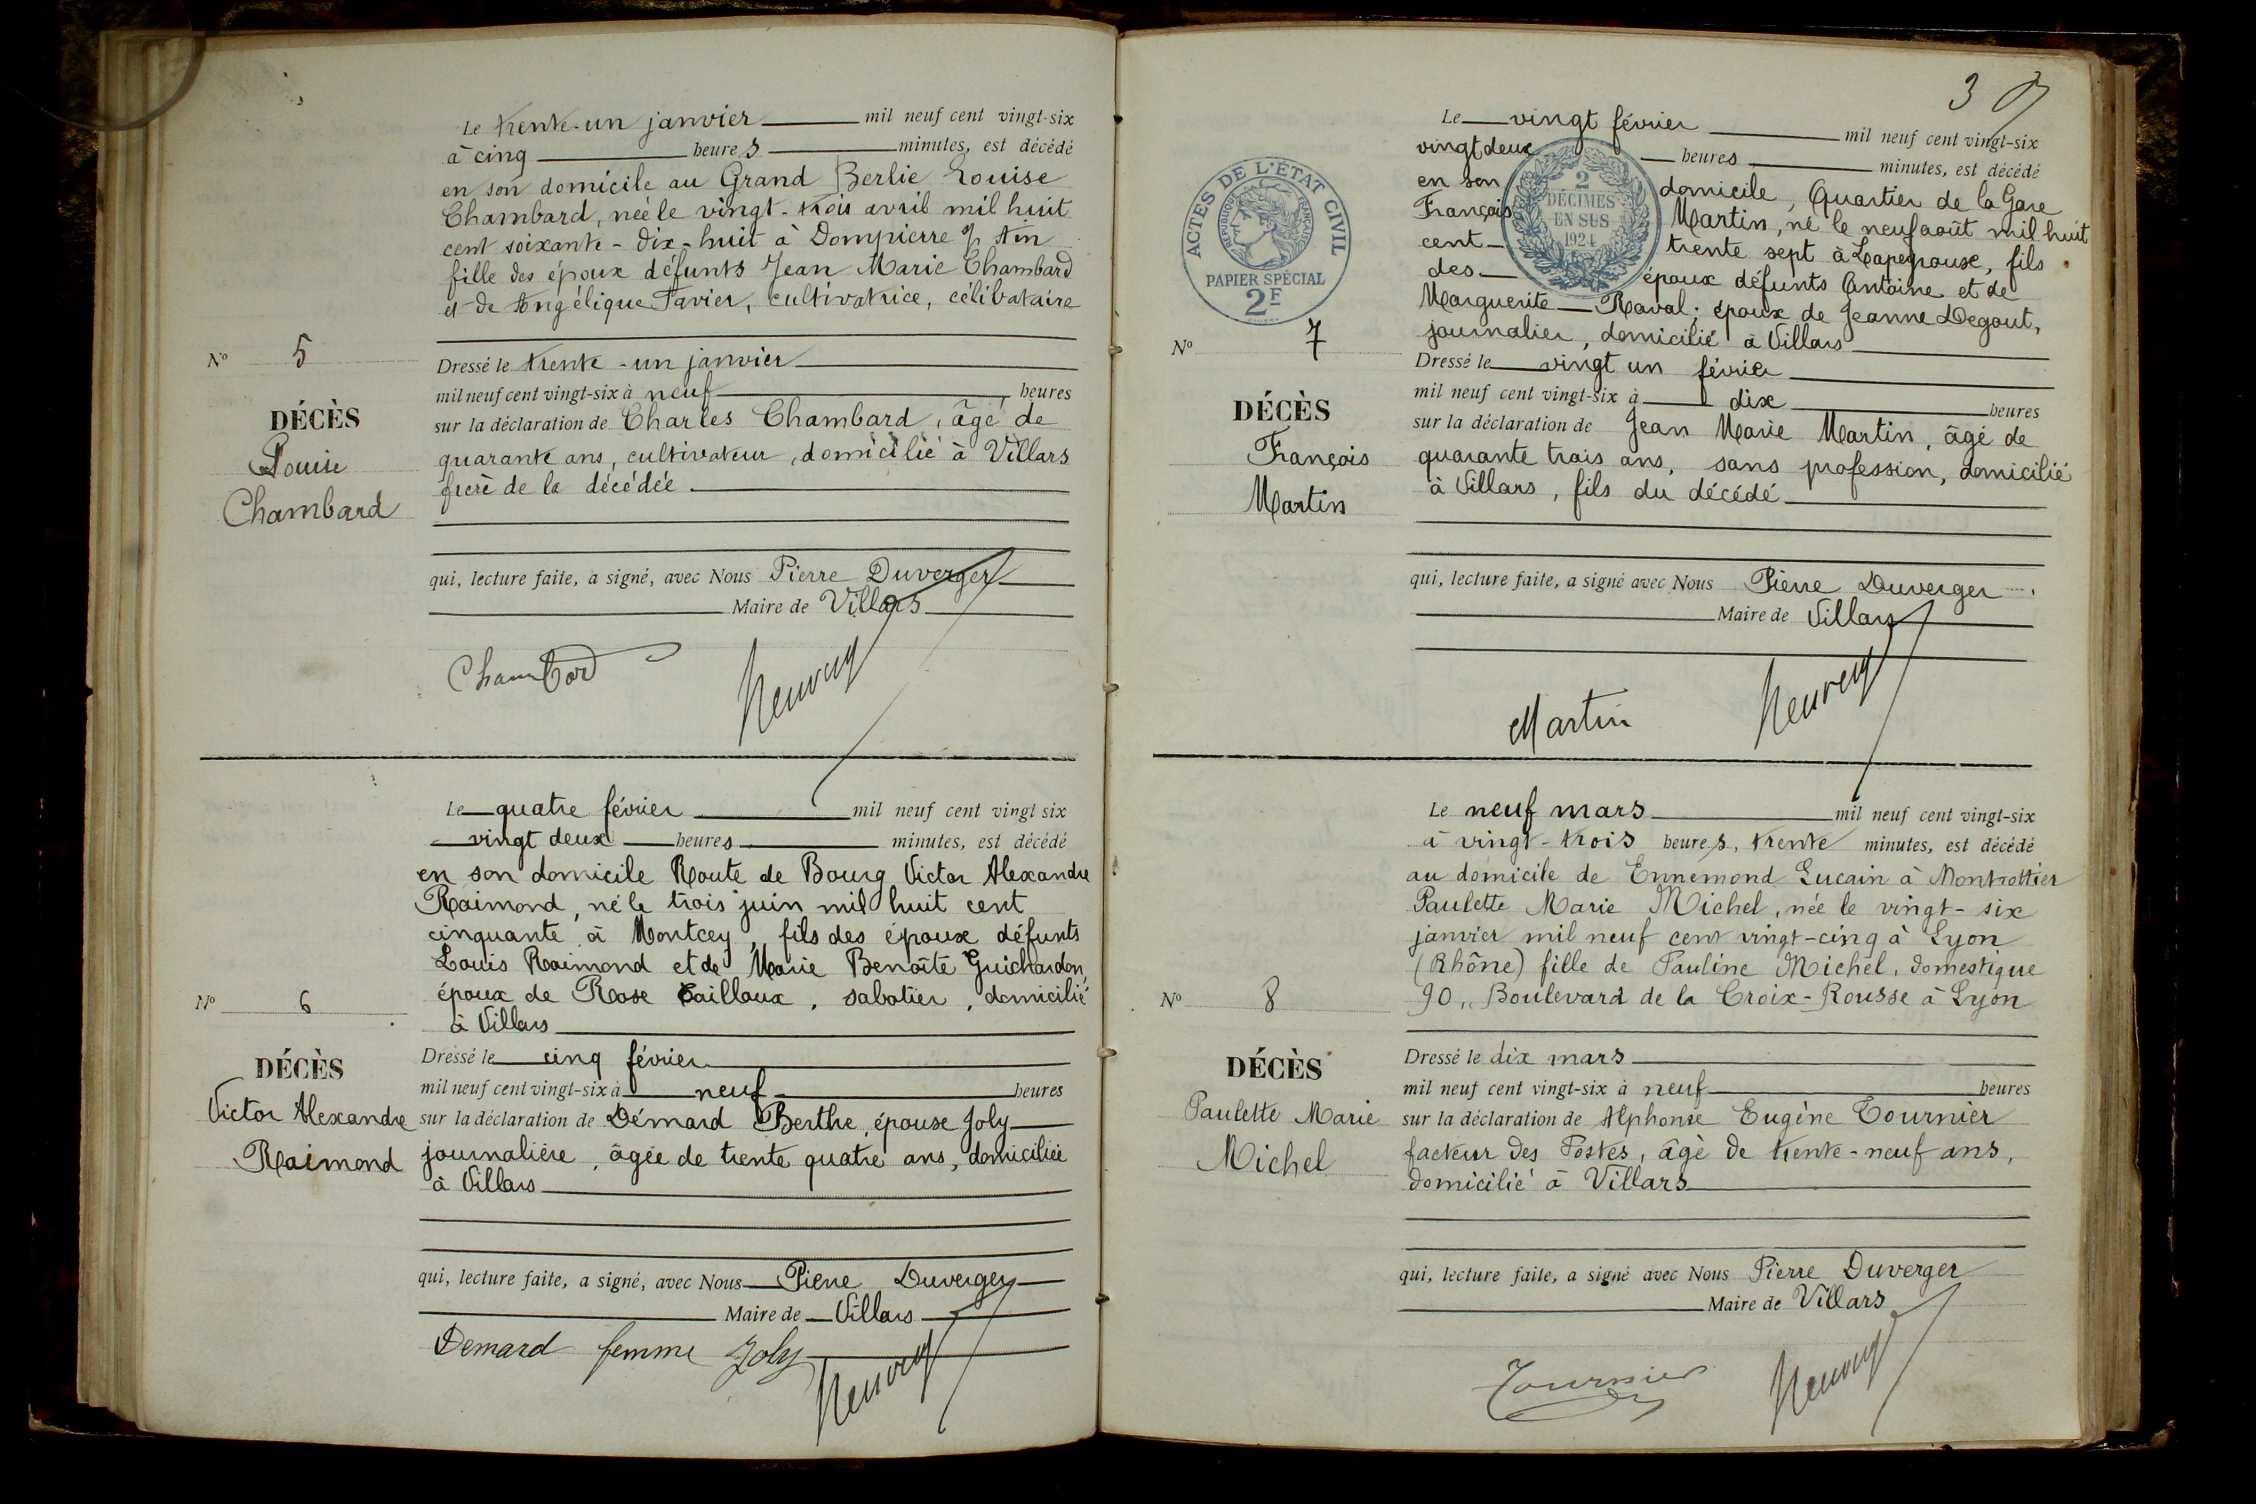 Le trente-un janvier mil neuf cent vingt-six
à cinq heures minutes, est décédé
en son domicile au Grand Berlie Louise
Chambard, née le vingt-trois avril mil huit
cent soixante-dix-huit à Dompierre s/ Ain
fille des époux défunts Jean Marie Chambard
et de Angélique Favier, cultivatrice, célibataire
N° 5
DÉCÈS
Louise
Chambard
Dressé le trente-un janvier
mil neuf cent vingt-six à neuf heures
sur la déclaration de Charles Chambard, âgé de
quarante ans, cultivateur, domicilié à Villars
frère de la décédée
qui, lecture faite, a signé, avec Nous Pierre Duverger
Maire de Villars
Chambard
Le quatre février mil neuf cent vingt six
vingt deux heures minutes, est décédé
en son domicile Route de Bourg Victor Alexandre
Raimond, né le trois juin mil huit cent
cinquante à Montcey, fils des époux défunts
Louis Raimond et de Marie Benoîte Guichardon,
époux de Rose Caillaux, sabotier, domicilié
à Villars
N° 6
DÉCÈS
Victor Alexandre
Raimond
Dressé le cinq février
mil neuf cent vingt-six à neuf heures
sur la déclaration de Démard Berthe, épouse Joly
journalière, âgée de trente quatre ans, domiciliée
à Villars
qui, lecture faite, a signé, avec Nous Pierre Duverger
Maire de Villars
Demard femme Joly
3
ACTES DE L'ÉTAT CIVIL
RÉPUBLIQUE FRANÇAISE
PAPIER SPÉCIAL
2F
2
DÉCIMES
EN SUS
1924
Le vingt février mil neuf cent vingt-six
vingt deux heures minutes, est décédé
en son domicile, Quartier de la Gare
François Martin, né le neuf août mil huit
cent trente sept à Lapeyrouse, fils
des époux défunts Antoine et de
Marguerite Raval; époux de Jeanne Degout,
journalier, domicilié à Villars
N° 7
DÉCÈS
François
Martin
Dressé le vingt un février
mil neuf cent vingt-six à dix heures
sur la déclaration de Jean Marie Martin, âgé de
quarante trois ans, sans profession, domicilié
à Villars, fils du décédé
qui, lecture faite, a signé avec Nous Pierre Duverger
Maire de Villars
Martin
Le neuf mars mil neuf cent vingt-six
à vingt-trois heures, trente minutes, est décédé
au domicile de Ennemond Lucain à Montrottier
Paulette Marie Michel, née le vingt-six
janvier mil neuf cent vingt-cinq à Lyon
(Rhône) fille de Pauline Michel, domestique
90, Boulevard de la Croix-Rousse à Lyon
N° 8
DÉCÈS
Paulette Marie
Michel
Dressé le dix mars
mil neuf cent vingt-six à neuf heures
sur la déclaration de Alphonse Eugène Tournier
facteur des Postes, âgé de trente-neuf ans,
domicilié à Villars
qui, lecture faite, a signé avec Nous Pierre Duverger
Maire de Villars
Tournier